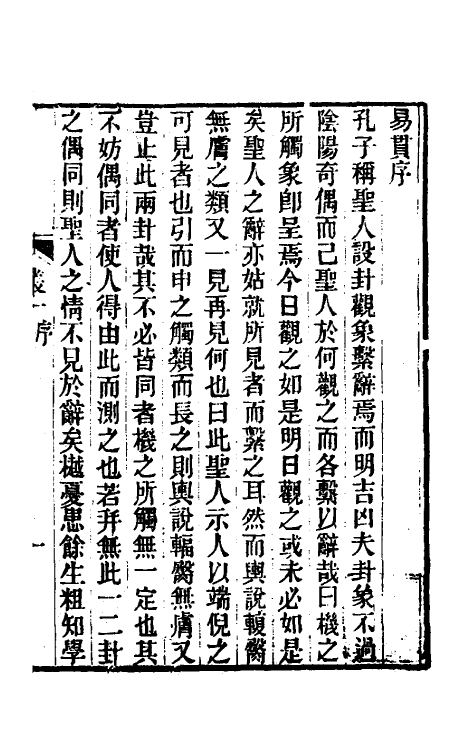 易貫序
孔子稱聖人設卦觀象繫辭焉而明吉凶夫卦象不過
陰陽奇偶而已聖人於何觀之而各繫以辭哉曰機之
所觸象卽呈焉今日觀之如是明日觀之或未必如是
矣聖人之辭亦姑就所見者而繫之耳然而輿說輹臀
無膚之類又一見再見何也曰此聖人示人以端倪之
可見者也引而申之觸類而長之則輿說輻臀無膚又
豈止此兩卦哉其不必皆同者機之所觸無一定也其
不妨偶同者使人得由此而測之也若幷無此一二卦
之偶同則聖人之情不見於辭矣樾憂患餘生粗知學
叢一序
一